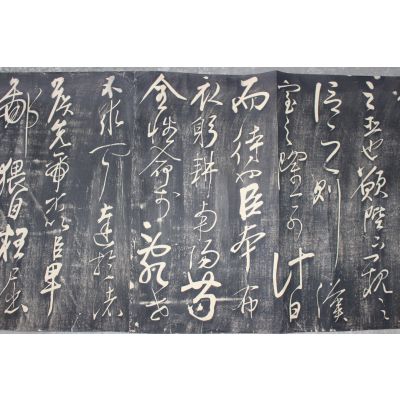 之臣也願陛下親之
信之則漢
室之隆可計日
而待也臣本布
衣躬耕南陽苟
全性命於亂世
不求聞達於諸
侯先帝不以臣卑
鄙猥自枉屈